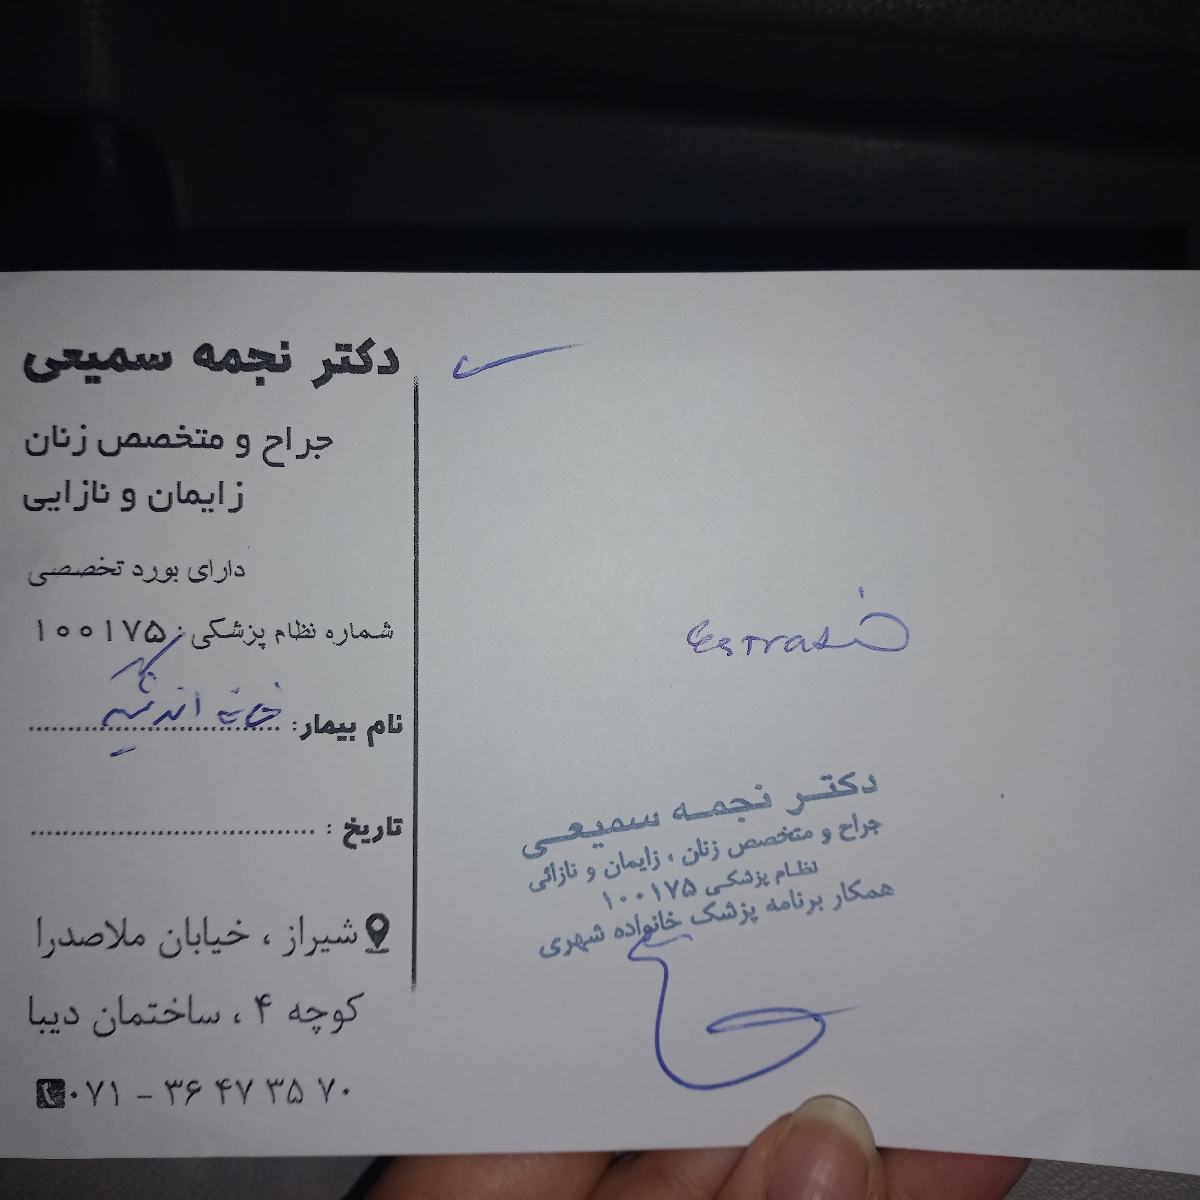 دکتر نجمه سمیعی
جراح و متخصص زنان
زایمان و نازایی
دارای بورد تخصصی
شماره نظام پزشکی: ۱۰۰۱۷۵
نام بیمار:
تاریخ :
شیراز ، خیابان ملاصدرا
کوچه ۴ ، ساختمان دیبا
۰۷۱ - ۳۶ ۴۷ ۳۵ ۷۰
دکتر نجمه سمیعی
جراح و متخصص زنان ، زایمان و نازائی
نظام پزشکی ۱۰۰۱۷۵
همکار برنامه پزشک خانواده شهری